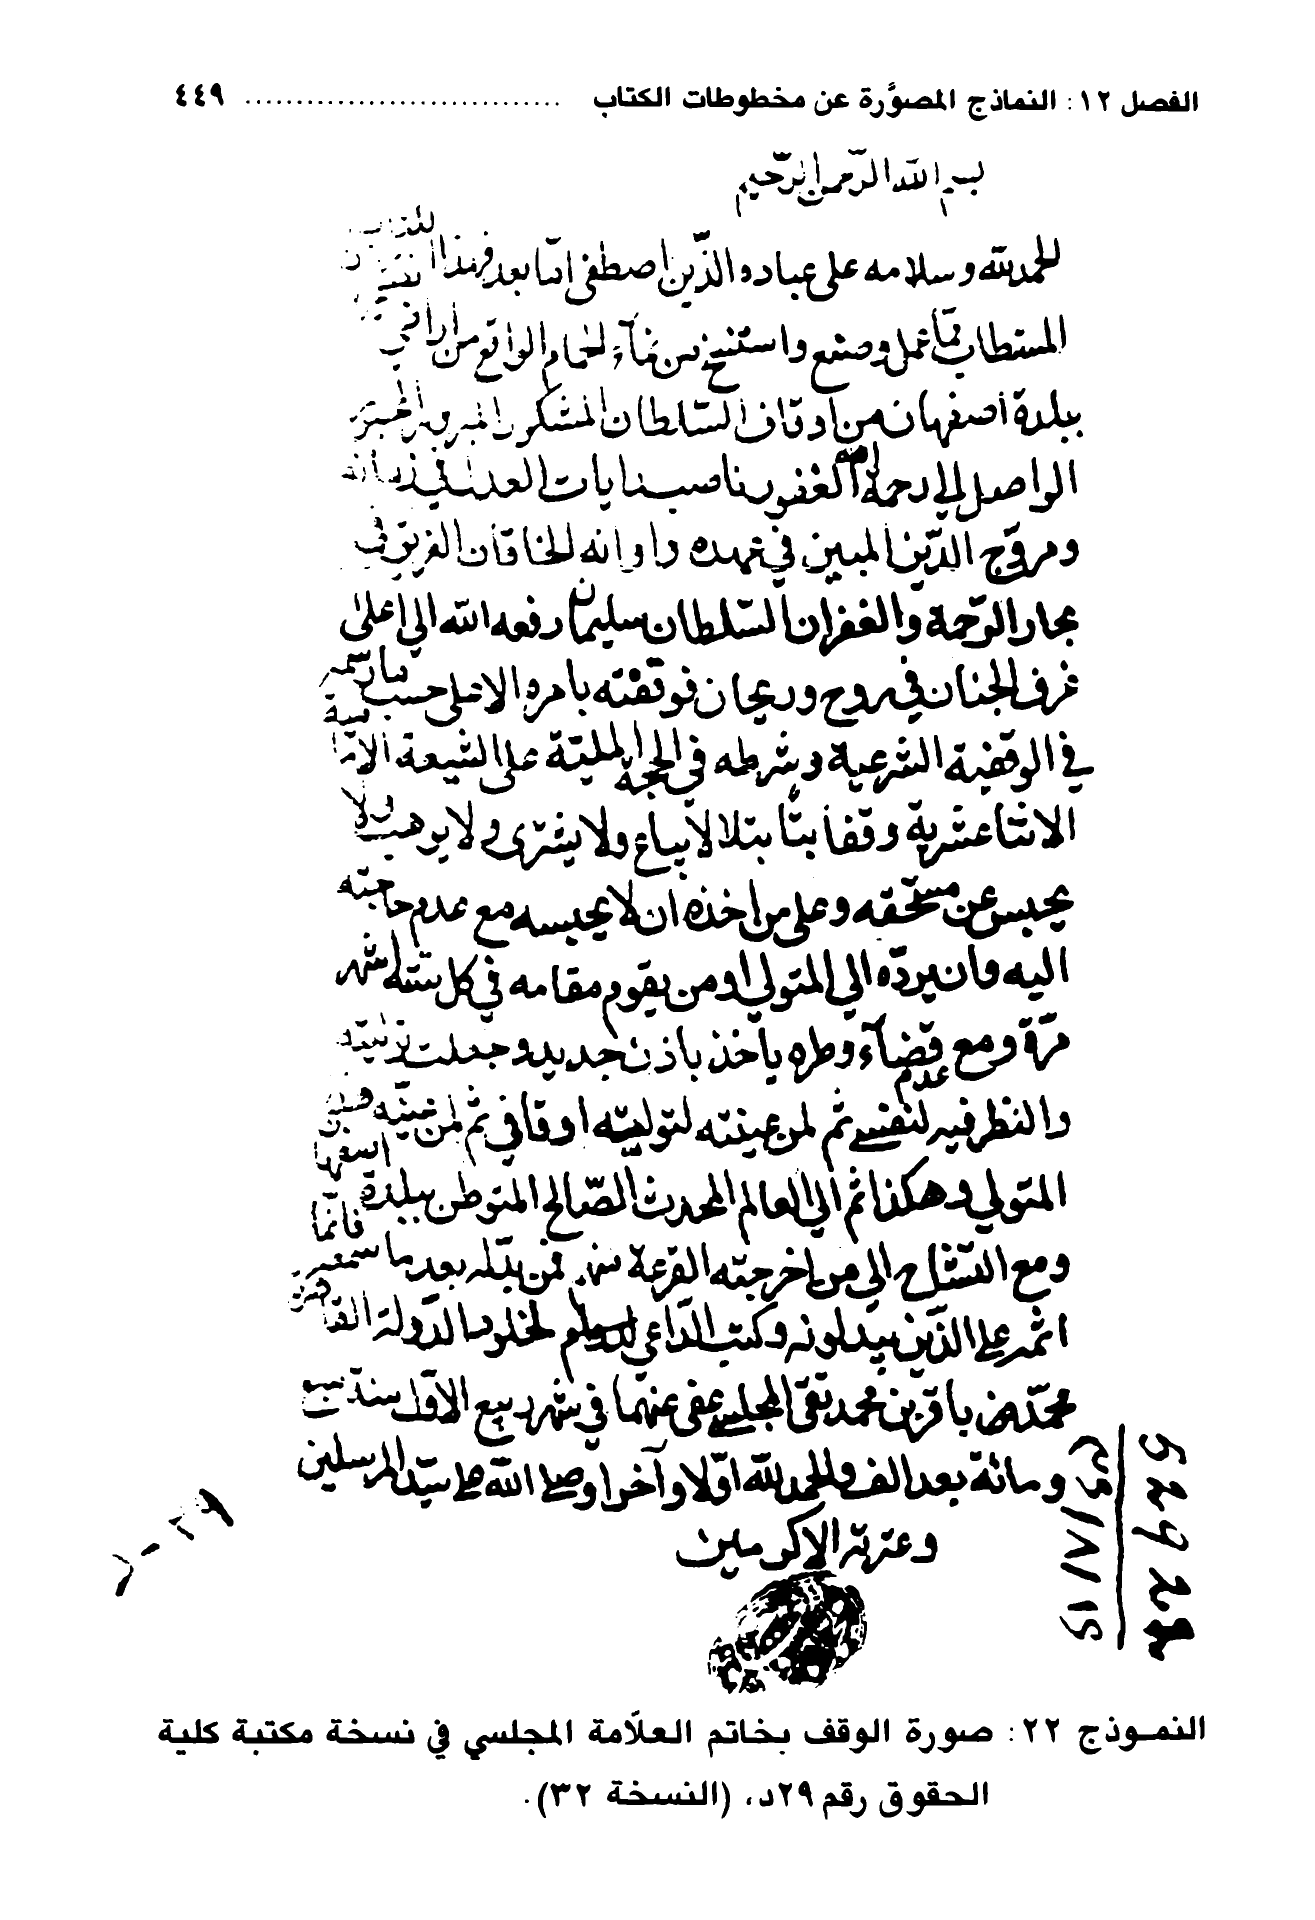 الفصل ١٢: النماذج المصوَّرة عن مخطوطات الكتاب .............................. ٤٤٩
بسم الله الرّحمن الرّحيم
الحمد لله وسلامه على عباده الذّين اصطفى امّا بعد فهذا
المستطاب ممّا عمل وصنع واستنسخ من نمآء الحمام الواقع من اراضي
ببلدة اصفهان من اوقاف السّلطان المشكور المبرور
الواصل الى رحمة الله الغفور ناصب رايات العدل في زمانه
ومروّج الدّين المبين في عهده واوانه الخاقان الغريق في
بحار الرّحمة والغفران السّلطان سليمان رفعه الله الى اعلى
غرف الجنان في روح وريحان فوقفته بامره الاعلى حسب ما رسمه
في الوقفية الشرعية وشرطه في الحجة الملّية على الشيعة الاماميّة
الاثنا عشرية وقفا بتّا بتلا لا يباع ولا يشترى ولا يوهب ولا
يحبس عن مستحقه وعلى من اخذه ان لا يحبسه مع عدم حاجته
اليه وان يردّه الى المتولي او من يقوم مقامه في كل ستّة اشهر
مرّة ومع عدم قضآء وطره ياخذ باذن جديد وجعلت توليته
والنظر فيه لنفسي ثم لمن عينته لتولية اوقافي ثم لمن عيّنه
المتولي وهكذا ثم الى العالم المحدث الصّالح المتوطن ببلدة اصفهان
ومع التشاح الى من اخرجته القرعة منهم فمن بدّله بعد ما سمعه فانّما
اثمه على الذّين يبدلونه وكتب الدّاعي لدوام الدّولة القاهرة
محمّد باقر بن محمد تقي المجلسي عفى عنهما في شهر ربيع الاوّل سنة سبع
ومائة بعد الف والحمد لله اوّلا وآخرا وصلى الله على سيّد المرسلين
وعترته الاكرمين
النموذج ٢٢: صورة الوقف بخاتم العلاّمة المجلسي في نسخة مكتبة كلية
الحقوق رقم ٢٩د، (النسخة ٣٢).